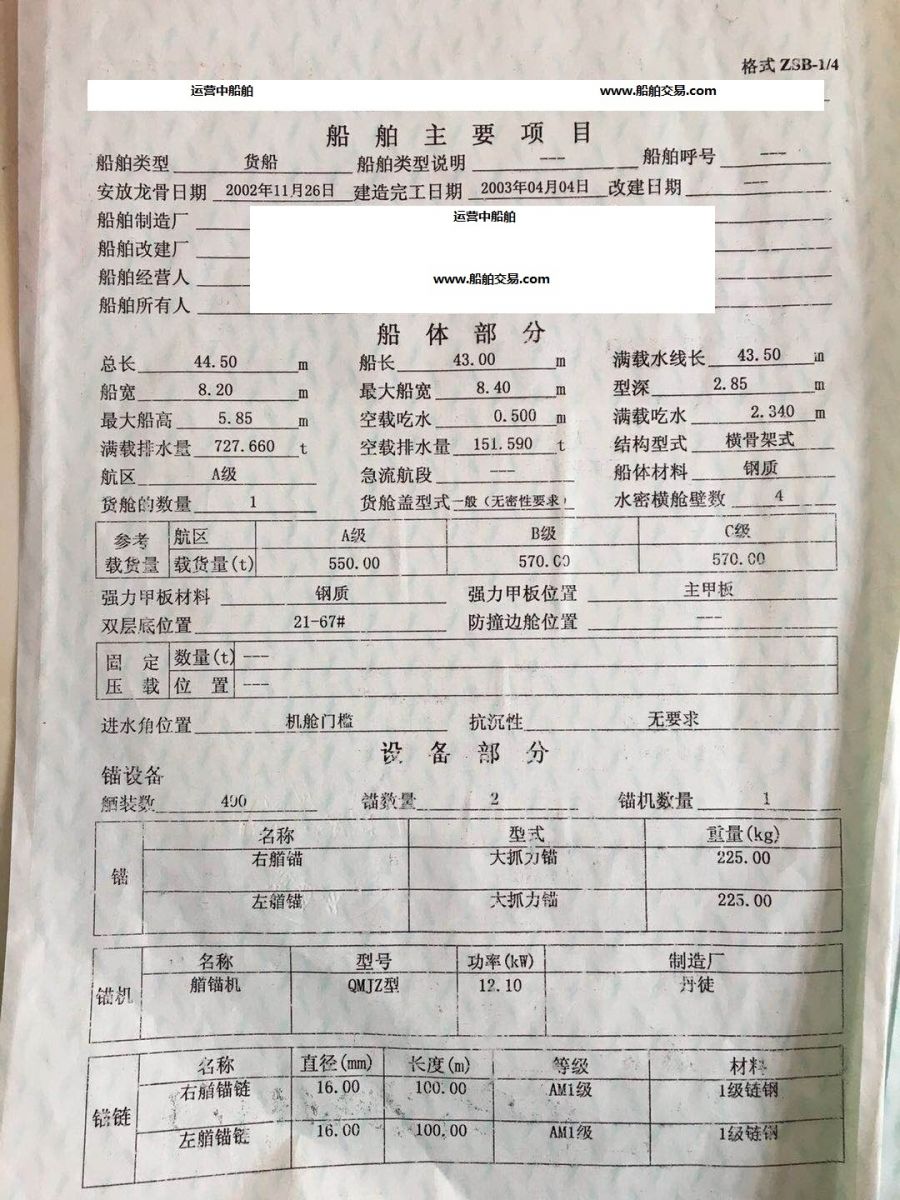 格式 ZSB-1/4
运营中船舶 www.船舶交易.com
船舶主要项目
船舶类型 货船 船舶类型说明 --- 船舶呼号 ---
安放龙骨日期 2002年11月26日 建造完工日期 2003年04月04日 改建日期 ---
船舶制造厂 运营中船舶
船舶改建厂
船舶经营人 www.船舶交易.com
船舶所有人
船体部分
总长 44.50 m 船长 43.00 m 满载水线长 43.50 m
船宽 8.20 m 最大船宽 8.40 m 型深 2.85 m
最大船高 5.85 m 空载吃水 0.500 m 满载吃水 2.340 m
满载排水量 727.660 t 空载排水量 151.590 t 结构型式 横骨架式
航区 A级 急流航段 --- 船体材料 钢质
货舱的数量 1 货舱盖型式 一般(无密性要求) 水密横舱壁数 4
参考 航区 A级 B级 C级
载货量 载货量(t) 550.00 570.00 570.00
强力甲板材料 钢质 强力甲板位置 主甲板
双层底位置 21-67# 防撞边舱位置 ---
固定 数量(t) ---
压载 位置 ---
进水角位置 机舱门槛 抗沉性 无要求
设备部分
锚设备
舾装数 400 锚数量 2 锚机数量 1
名称 型式 重量(kg)
锚 右艏锚 大抓力锚 225.00
左艏锚 大抓力锚 225.00
名称 型号 功率(kW) 制造厂
锚机 艏锚机 QMJZ型 12.10 丹徒
名称 直径(mm) 长度(m) 等级 材料
锚链 右艏锚链 16.00 100.00 AM1级 1级链钢
左艏锚链 16.00 100.00 AM1级 1级链钢